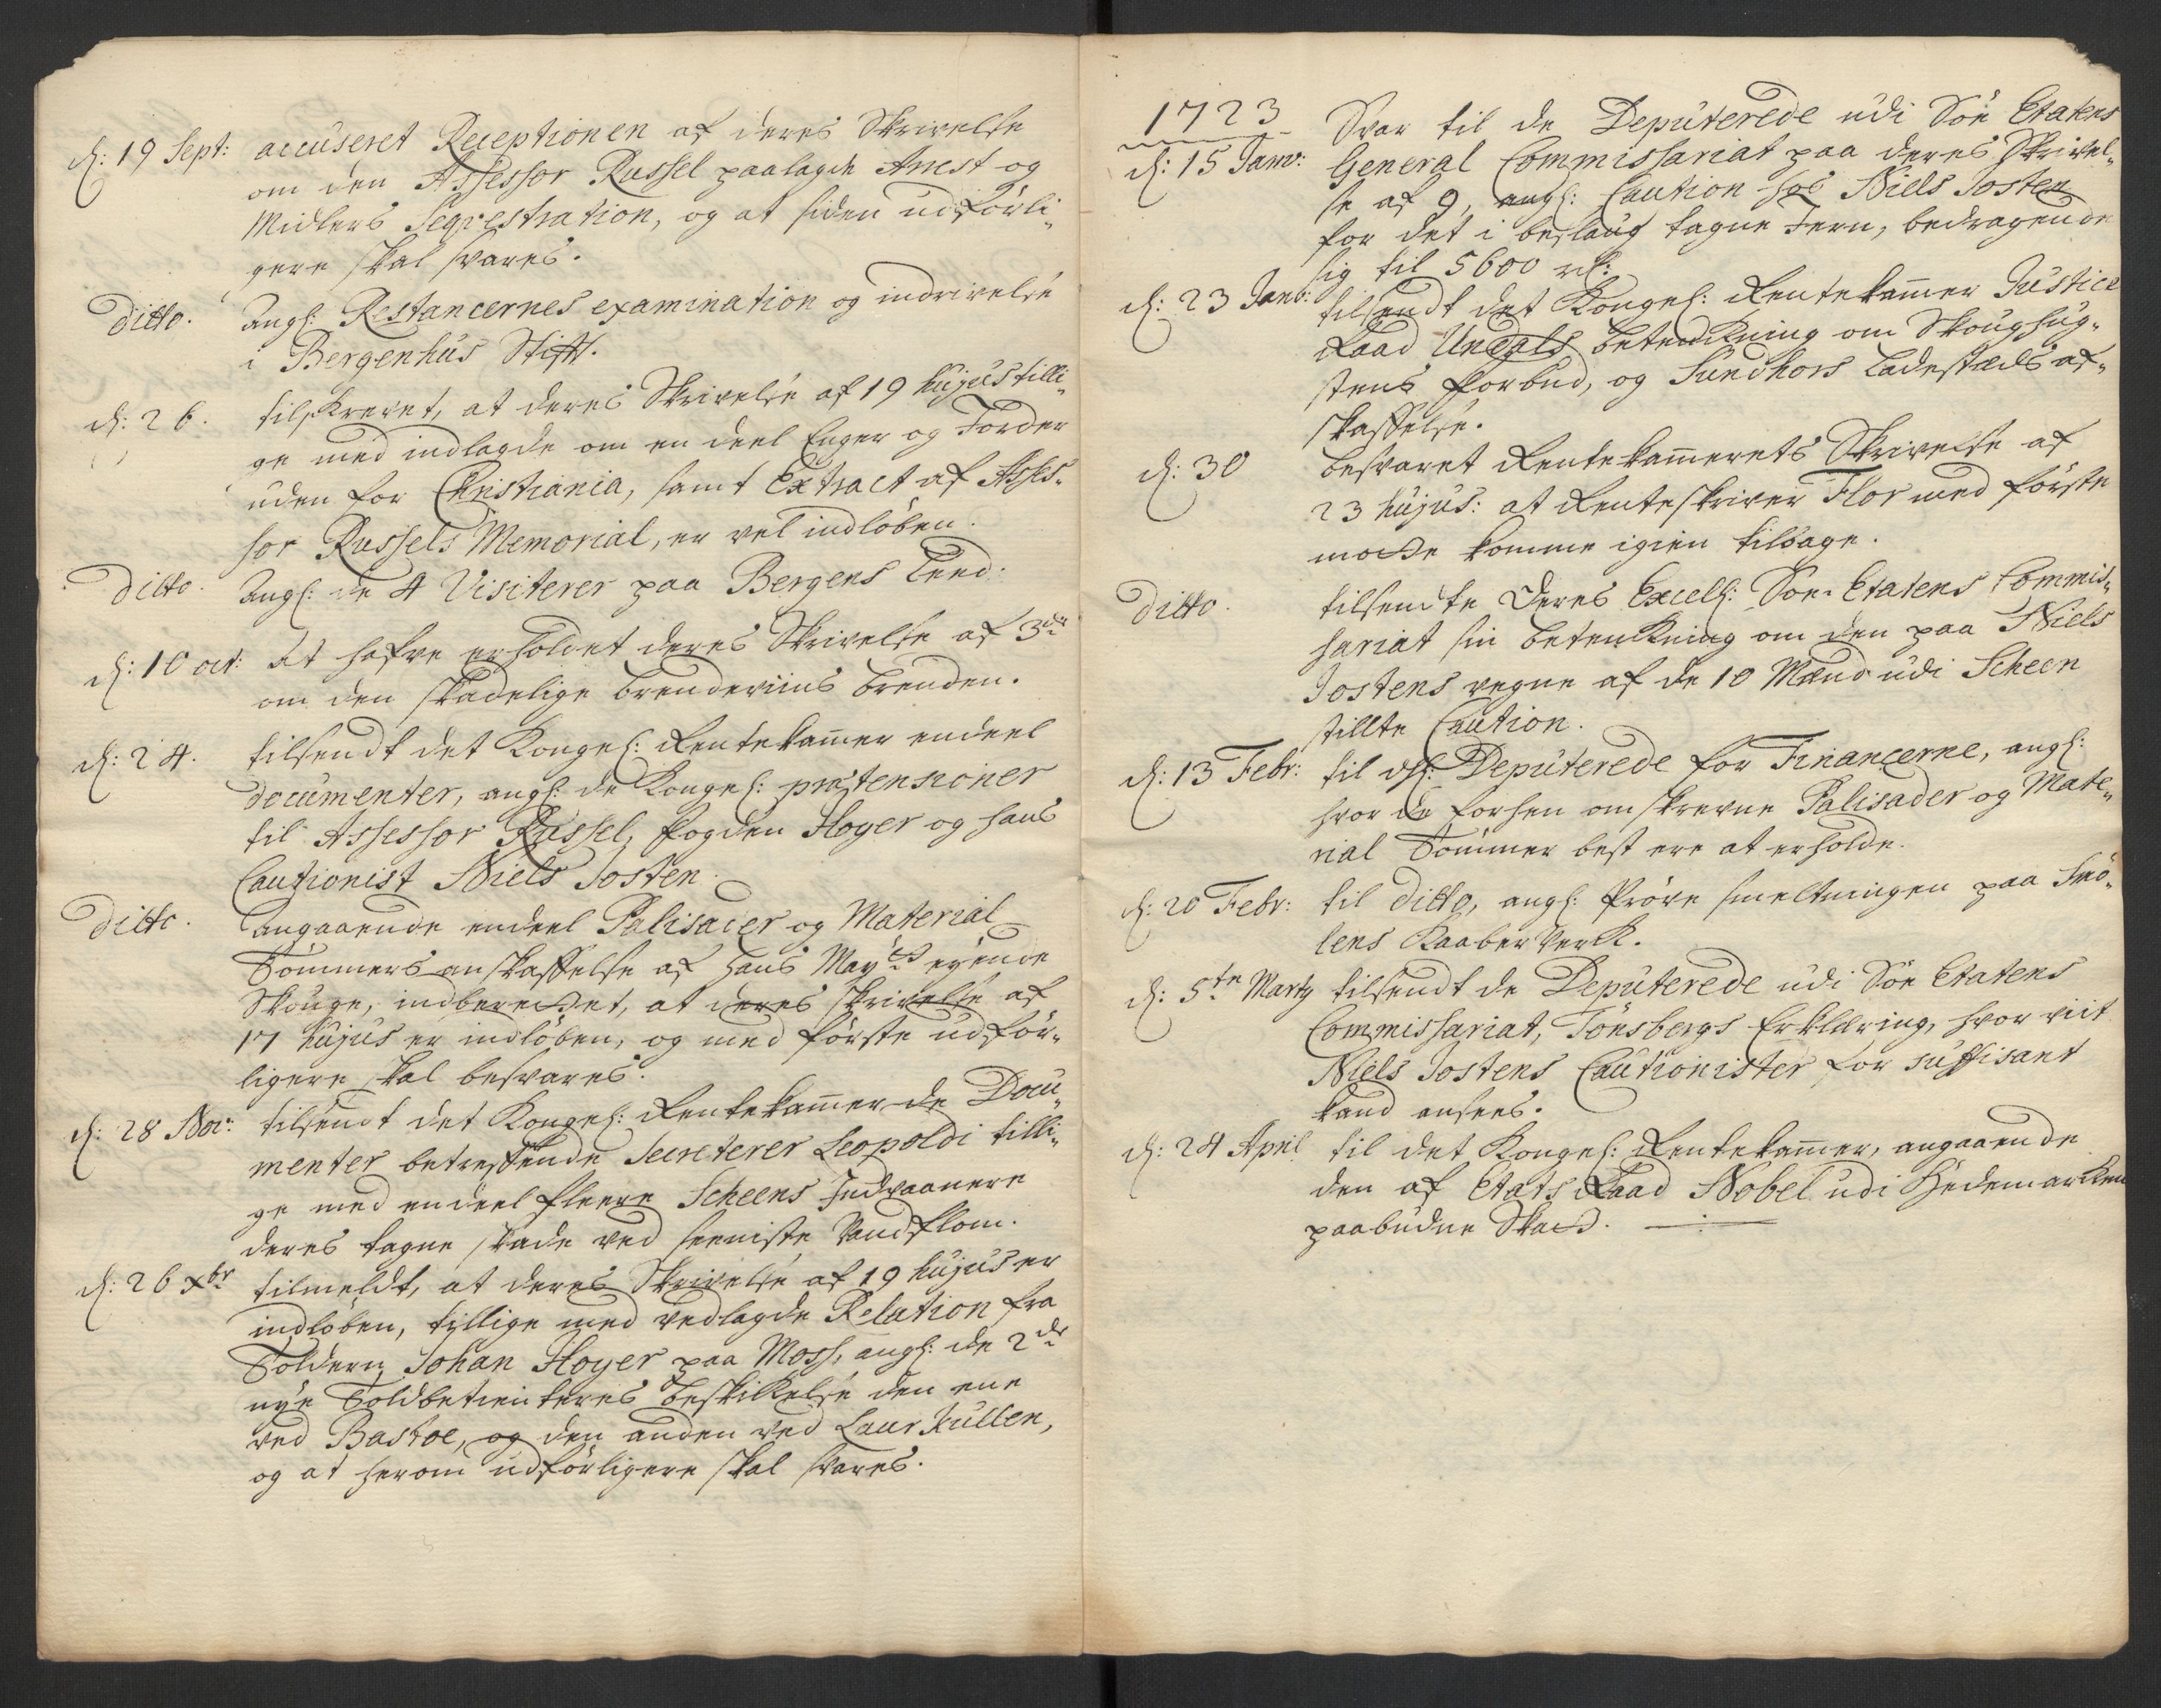 d: 19 Sept: accuseret Receptionen af deres Skrivelse
om den Assessor Russel paalagde Arrest og
Midlers Seqvestration, og at siden udförli-
gere skal svares.
ditto. Ang: Restancernes examination og indrivelse
i Bergenhus Stift.
d: 26. tilskrevet, at deres Skrivelse af 19 hujus tilli-
ge med indlagde om en deel Enger og Jorder
uden for Christiania, samt Extract af Asses-
sor Russels Memorial, er vel indlöben.
ditto. Ang: de 4 Visiterer paa Bergens Leed.
d: 10 oct: At hafve erholdet deres Skrivelse af 3de
om den skadelige brendeviins brenden.
d: 24. tilsendt det Kongel: Rentekammer endeel
documenter, ang: de Kongel: prætensioner
til Assessor Russel, fogden Hoyer og hans
Cautionist Niels Josten.
ditto. Angaaende endeel Palisader og Material
Tömmers anskaffelse af Hans Mayts eyende
Skouge, indberettet, at deres skrivelse af
17 hujus er indlöben, og med förste udför-
ligere skal besvares.
d: 28 Nov: tilsendt det Kongel: Rentekammer de Docu-
menter betreffende Secreterer Leopoldi tilli-
ge med endeel fleere Scheens Indvaanere
deres tagne skade ved seeniste Vandflom.
d: 26 Xbr tilmeldt, at deres Skrivelse af 19 hujus er
indlöben, tillige med vedlagde Relation fra
Tolderen Johan Hoyer paa Moss, ang: de 2de
nye Toldbetienteres beskikkelse den ene
ved Bastoe, og den anden ved Laurkullen,
og at herom udförligere skal svares.
1723
d: 15 Janv: Svar til de Deputerede udi Söe Etatens
General Commissariat paa deres Skrivel-
se af 9, ang: Caution hos Niels Josten
for det i beslaug tagne Jern, bedragende
sig til 5600 rd:
d: 23 Janv: tilsendt det Kongel: Rentekammer Justice
Raad Undals betenckning om Skoughug-
stens forbud, og Sundhors Ladesteds af-
skaffelse.
d: 30 besvaret Rentekammerets Skrivelse af
23 hujus: at Renteskriver Flor med förste
motte komme igien tilbage.
ditto. tilsendte Deres Excell: Söe-Etatens Commis-
sariat sin betenckning om den paa Niels
Jostens vegne af de 10 Mænd udi Scheen
stillte Caution.
d: 13 Febr: til dh: Deputerede for Financerne, ang:
hvor de forhen omskrevne Palisader og Mate-
rial Tömmer best ere at erholde.
d: 20 Febr: til ditto, ang: Pröve smeltningen paa Smö-
lens Kaaber Verk.
d: 5te Marty tilsendt de Deputerede udi Söe Etatens
Commissariat, Tönsbergs Erklæring, hvor viit
Niels Jostens Cautionister for suffisant
kand ansees.
d: 24 April til det Kongel: Rentekammer, angaaende
den af Etats Raad Nobel udi Hedemarcken
paabudne Skatt.